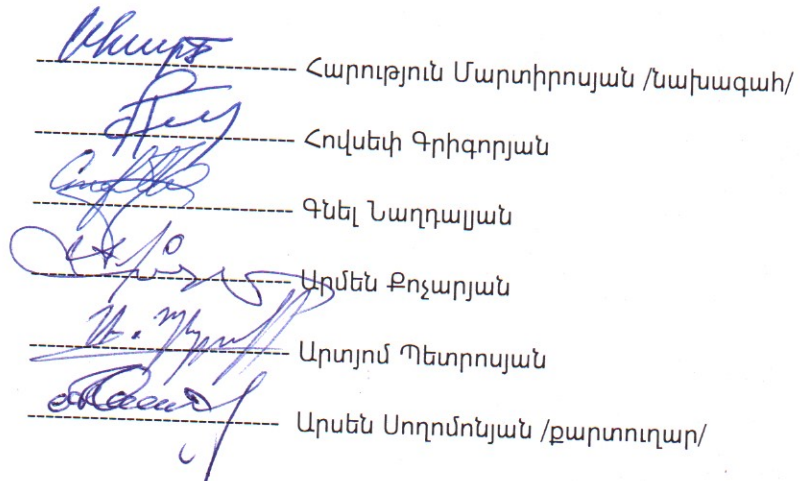 Հարություն Մարտիրոսյան /նախագահ/
Հովսեփ Գրիգորյան
Գնել Նաղդալյան
Արմեն Քոչարյան
Արտյոմ Պետրոսյան
Արսեն Սողոմոնյան /քարտուղար/